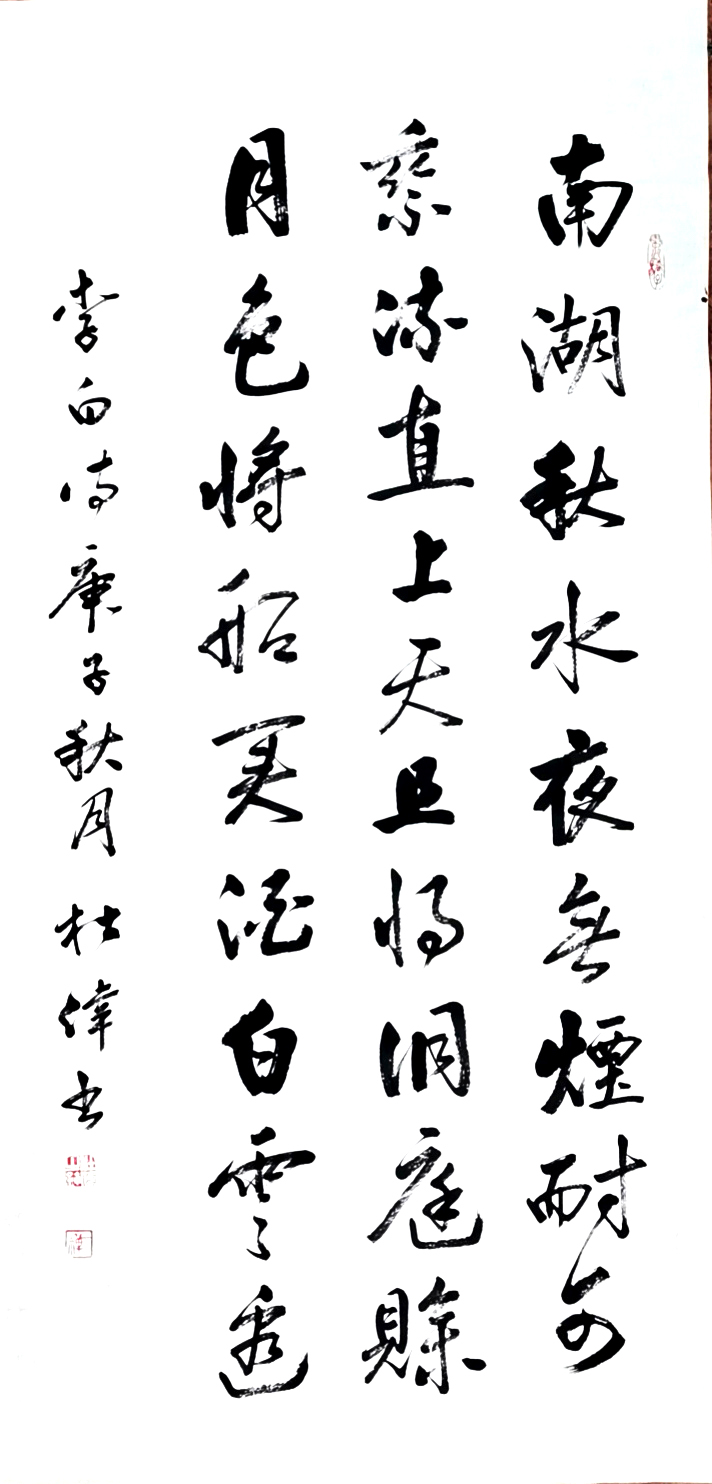 南湖秋水夜無煙耐可
乘流直上天且将洞庭賒
月色將船买酒白雲邊
李白诗庚子秋月 杜 书